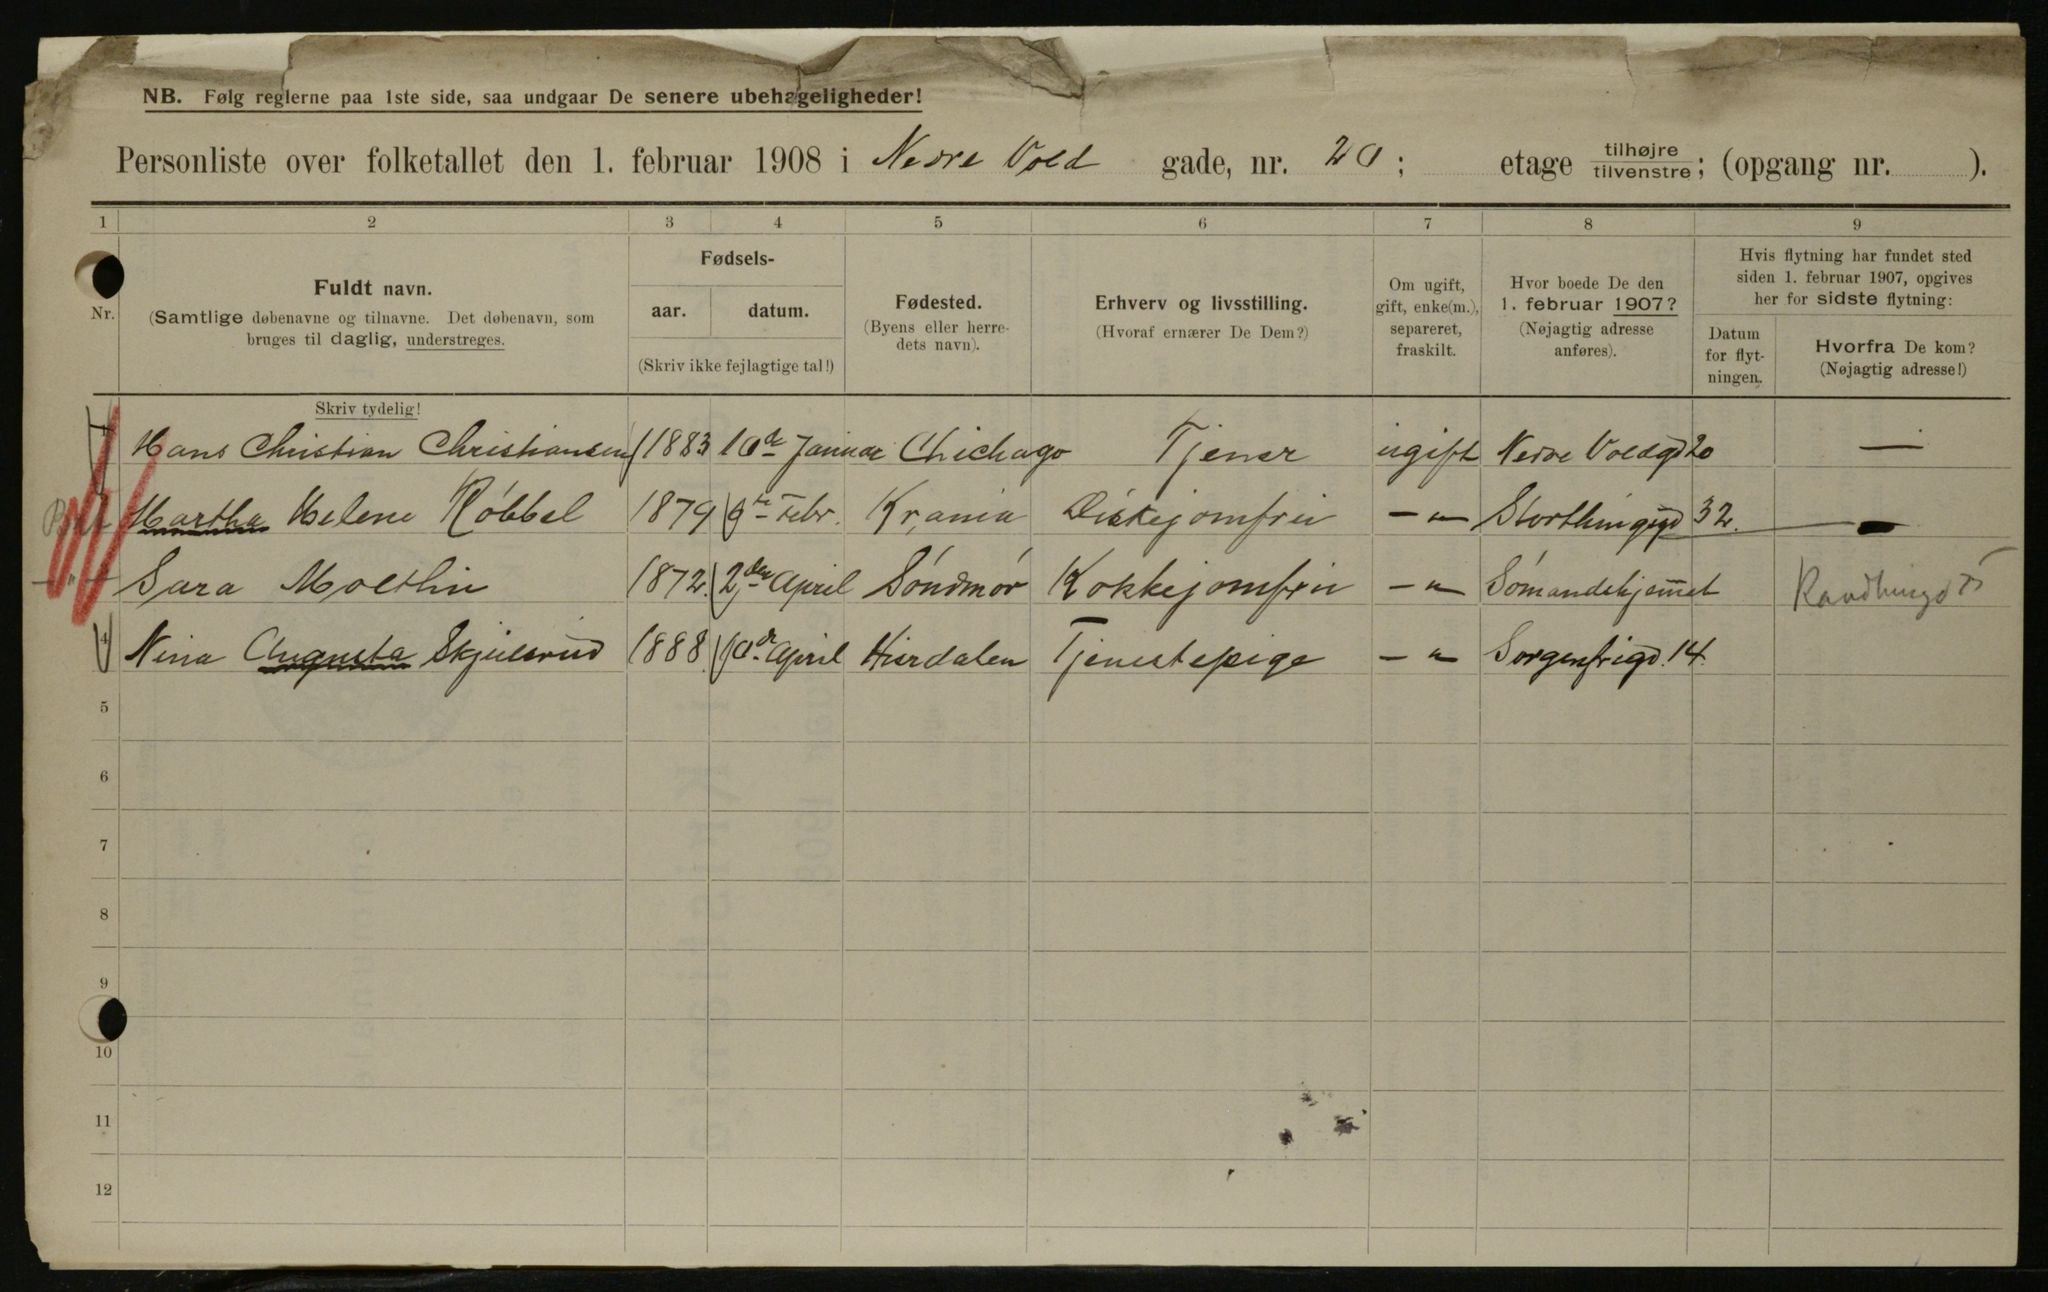 NB. Følg reglerne paa 1ste side, saa undgaar De senere ubehageligheder!
Personliste over folketallet den 1. februar 1908 i Nedre Vold gade, nr. 20; etage tilhøjre/tilvenstre; (opgang nr. ).
1 2 3 4 5 6 7 8 9
Nr.
Fuldt navn.
(Samtlige døbenavne og tilnavne. Det døbenavn, som
bruges til daglig, understreges.
Skriv tydelig!
Fødsels-
aar. datum.
(Skriv ikke fejlagtige tal!)
Fødested.
(Byens eller herre-
dets navn).
Erhverv og livsstilling.
(Hvoraf ernærer De Dem?)
Om ugift,
gift, enke(m.),
separeret,
fraskilt.
Hvor boede De den
1. februar 1907?
(Nøjagtig adresse
anføres).
Hvis flytning har fundet sted
siden 1. februar 1907, opgives
her for sidste flytning:
Datum
for flyt-
ningen.
Hvorfra De kom?
(Nøjagtig adresse!)
Hans Christian Christiansen 1883 10de Januar Chichago Tjener ugift Nedre Voldgd 20 —
Martha Helene Röbbel 1879 9de Febr. Kr,ania Diskejomfru — " — Storthingsgd 32. —
Sara 1872. 2den April Söndmör Kokkejomfru — " — Sömandshjemmet
4 Nina Augusta Skjulsrud 1888 10de April Hierdalen Tjenestepige — " — Sorgenfrigd. 14.
5
6
7
8
9
10
11
12